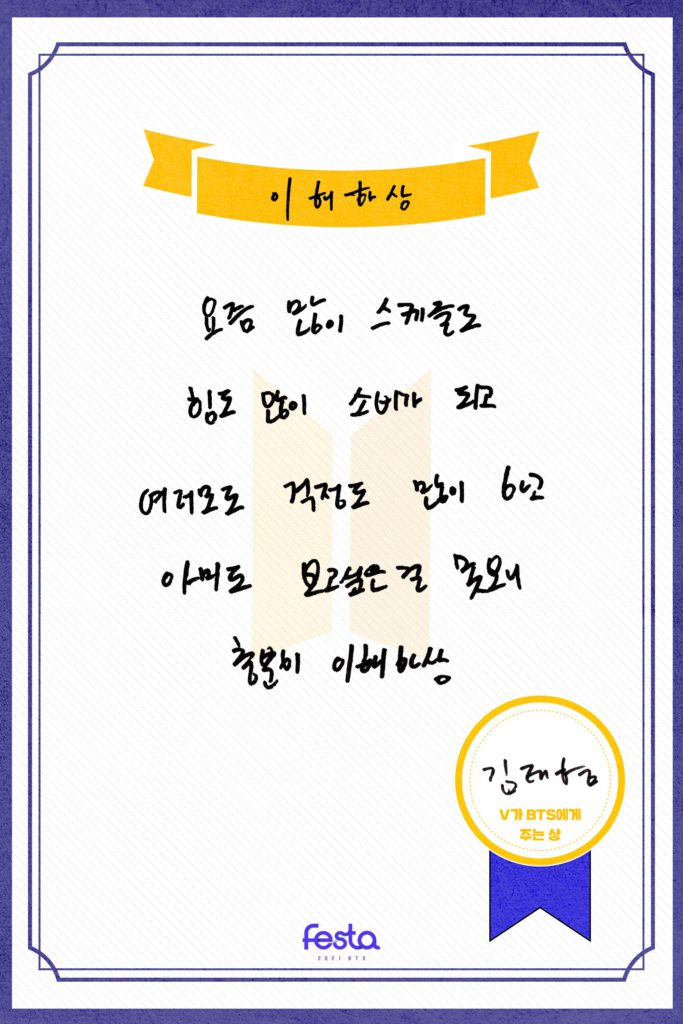 이해하상
요즘 많이 스케줄로
힘도 많이 소비가 되고
여러모로 걱정도 많이 하고
아미도 보고싶은걸 못보니
충분히 이해하상
김태형
V가 BTS에게
주는 상
festa
2021 BTS